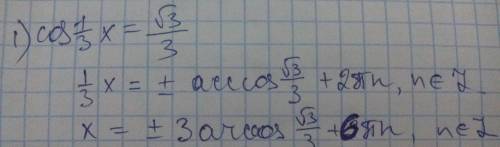 1) cos 1/3 x = √3/3
1/3 x = ± arccos √3/3 + 2πn, n ∈ Z
x = ± 3 arccos √3/3 + 6πn, n ∈ Z